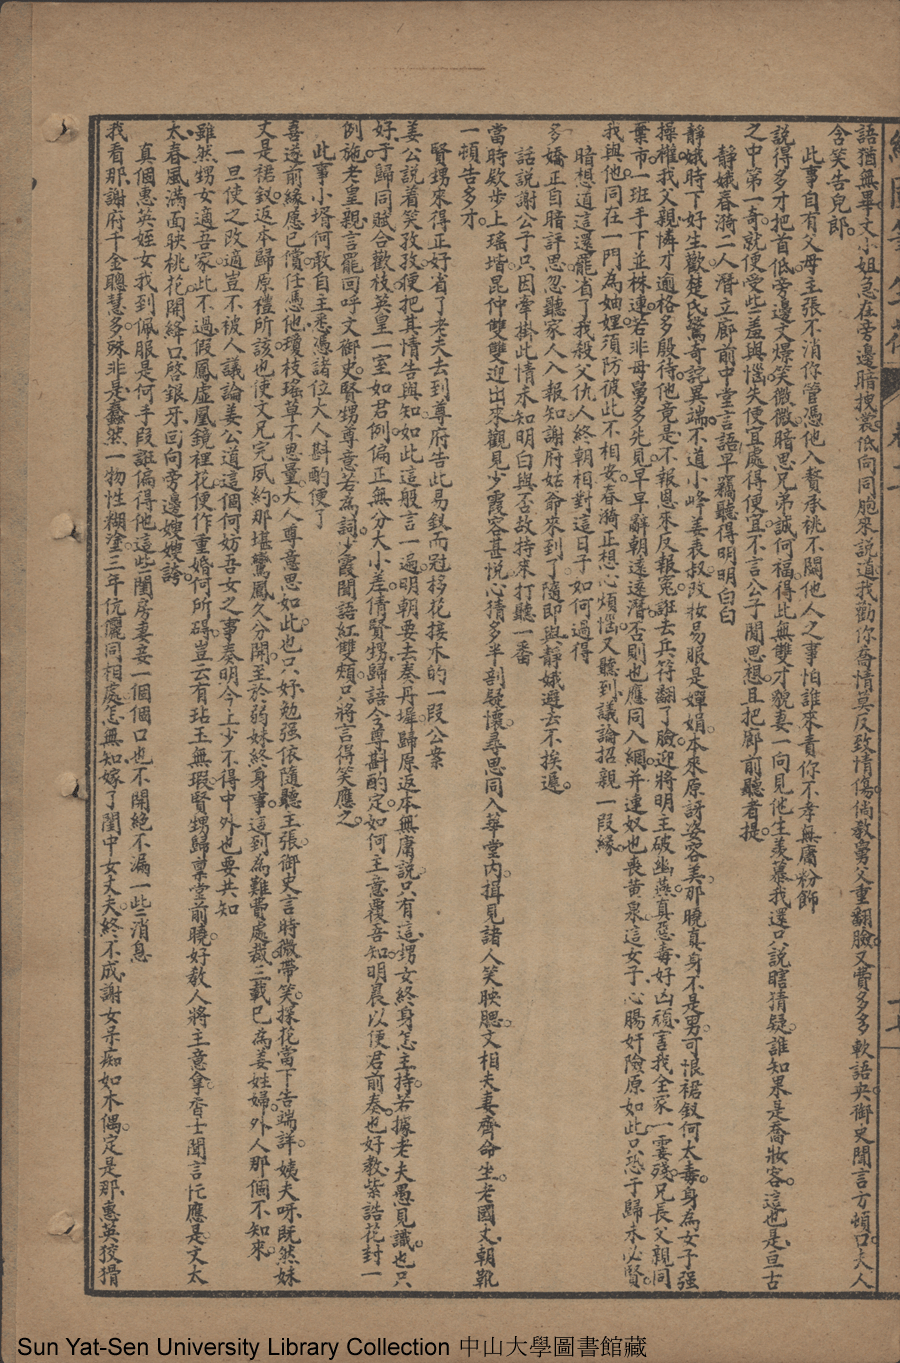 語猶無畢文小姐急在旁邊暗拽裳低向同胞來説道我勸你喬情莫反致情傷倘教舅父重翻臉又費多多軟語央御史聞言方頓口夫人
含笑告皃郎
此事自有父母主張不消你管憑他入贅承祧不關他人之事怕誰來責你不孝無庸粉飾
説得多才把首低旁邊文爆笑微微暗思兄弟誠何福得此無雙才貌妻一向見他生羨慕我還只説瞎猜疑誰知果是喬妝客這也是亘古
之中第一奇就便受些羞與惱失便宜處得便宜不言公子閒思想且把廊前聽者提
靜娥春漪二人潛立廊前中堂言語早竊聽得明明白白
靜娥時下好生歡楚氏驚奇詫異端不道小峰姜表叔改妝易服是嬋娟本來原訝姿容美那曉真身不是男可恨裙釵何太毒身為女子强
操權我父親憐才適格多殷待他竟是不報恩來反報寃誑去兵符翻了臉迎將明主破幽燕真惡毒好凶頑言我全家一霎殘兄長父親同
棄市一班手下並株連若非母舅多先見早早辭朝遠遠潛否則也應同入網并連奴也喪黃泉這女子心腸奸險原如此只恐于歸未必賢
我與他同在一門為妯娌須防彼此不相安春漪正想心煩惱又聽到議論招親一段緣
暗想道這還罷省了我殺父仇人終朝相對這日子如何過得
多嬌正自暗評思忽聽家人入報知謝府姑爺來到了隨即與靜娥避去不挨遲
話説謝公子只因牽掛此情未知明白與否故持來打聽一番
當時歐步上瑤堦昆仲雙雙迎出來觀見少霞容甚悦心猜多半剖疑懷尋思同入華堂内揖見諸人笑映腮文相夫妻齊命坐老國丈朝靴
一頓告多才
賢甥來得正好省了老夫去到尊府告此易釵而冠移花接木的一段公案
姜公説着笑孜孜便把其情告與知如此這般言一遍明朝要去奏丹墀歸原返本無庸説只有這甥女終身怎主持若據老夫愚見識也只
好于歸同賦合歡枝英皇一室如君例偏正無分大小差倩賢甥歸語令尊斟酌定如何主意覆吾知明晨以便君前奏也好教紫誥花封一
例施老皇親言罷回呼文御史賢甥尊意若為詞少霞聞語紅雙頰只將言得笑應之
此事小壻何敢自主悉憑諸位大人斟酌便了
喜遂前緣愿已償任憑他瓊枝瑤草不思量大人尊意思如此也只好勉强依隨聽主張御史言時微帶笑探花當下告端詳姨夫呀既然妹
丈是裙釵返本歸原禮所該也使文兄完夙約那堪鸞鳳久分開至於弱妹終身事這到為難費處裁三載已為姜姓婦外人那個不知來
一旦使之改適豈不被人議論姜公道這個何妨吾女之事奏明今上少不得中外也要共知
雖然甥女適吾家此不過假鳳虛凰鏡裡花便作重婚何所碍豈云有玷玉無瑕賢甥歸稟堂前曉好教人將主意拿香士聞言忙應是文太
太春風滿面映桃花開絳口啓銀牙回向旁邊嫂嫂誇
真個惠英姪女我到佩服是何手段誑偏得他這些閨房妻妾一個個口也不開絶不漏一些消息
我看那謝府千金聰慧多殊非是蠢然一物性糊塗三年伉儷同相處怎無知嫁了閨中女丈夫終不成謝女呆痴如木偶定是那惠英狡猾
Sun Yat-Sen University Library Collection 中山大學圖書館藏